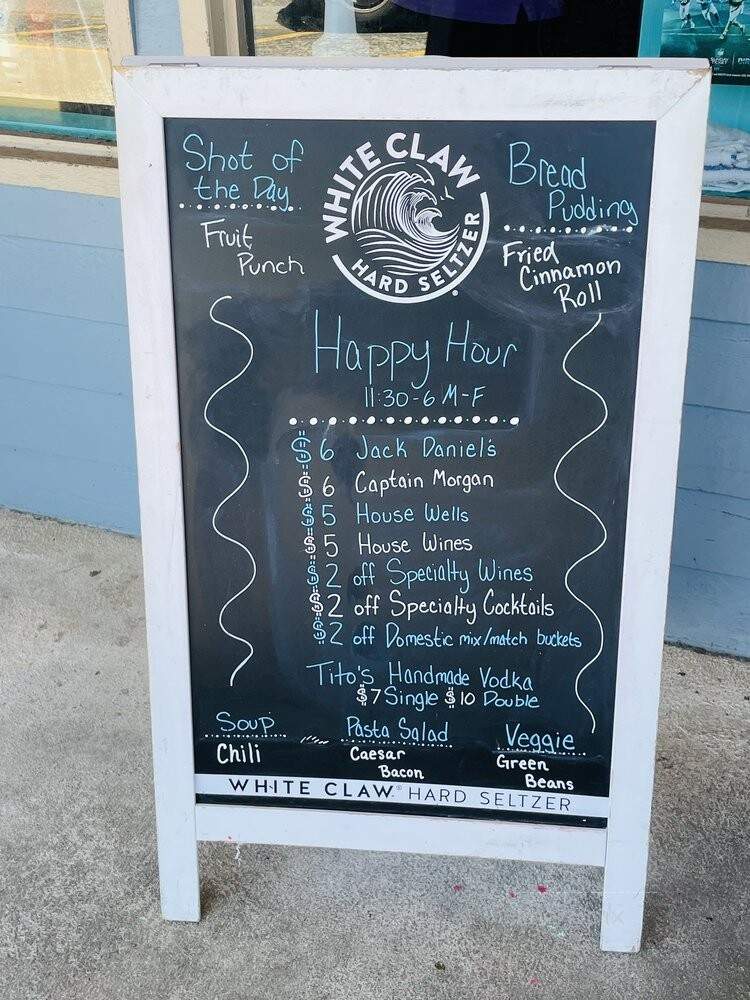 Shot of
the Day
Fruit
Punch
WHITE CLAW
HARD SELTZER
Bread
Pudding
Fried
Cinnamon
Roll
Happy Hour
11:30-6 M-F
$6 Jack Daniel's
$6 Captain Morgan
$5 House Wells
$5 House Wines
$2 off Specialty Wines
$2 off Specialty Cocktails
$2 off Domestic mix/match buckets
Tito's Handmade Vodka
$7 Single $10 Double
Soup
Chili
Pasta Salad
Caesar
Bacon
Veggie
Green
Beans
WHITE CLAW® HARD SELTZER